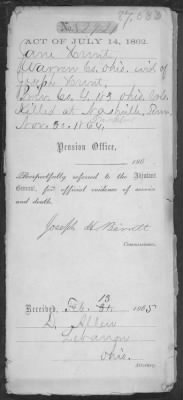 ACT OF JULY 14, 1862.
Jane Hunt,
Warren Co. Ohio, wid. of
Joseph Hunt,
Killed at Nashville, Tenn.
Pension Office,
186
Respectfully referred to the Adjutant
General, for official evidence of service
and death.
Joseph H. Barrett
Commissioner.
Received, Feb. 13 1865
Lebanon
Ohio.
Attorney.